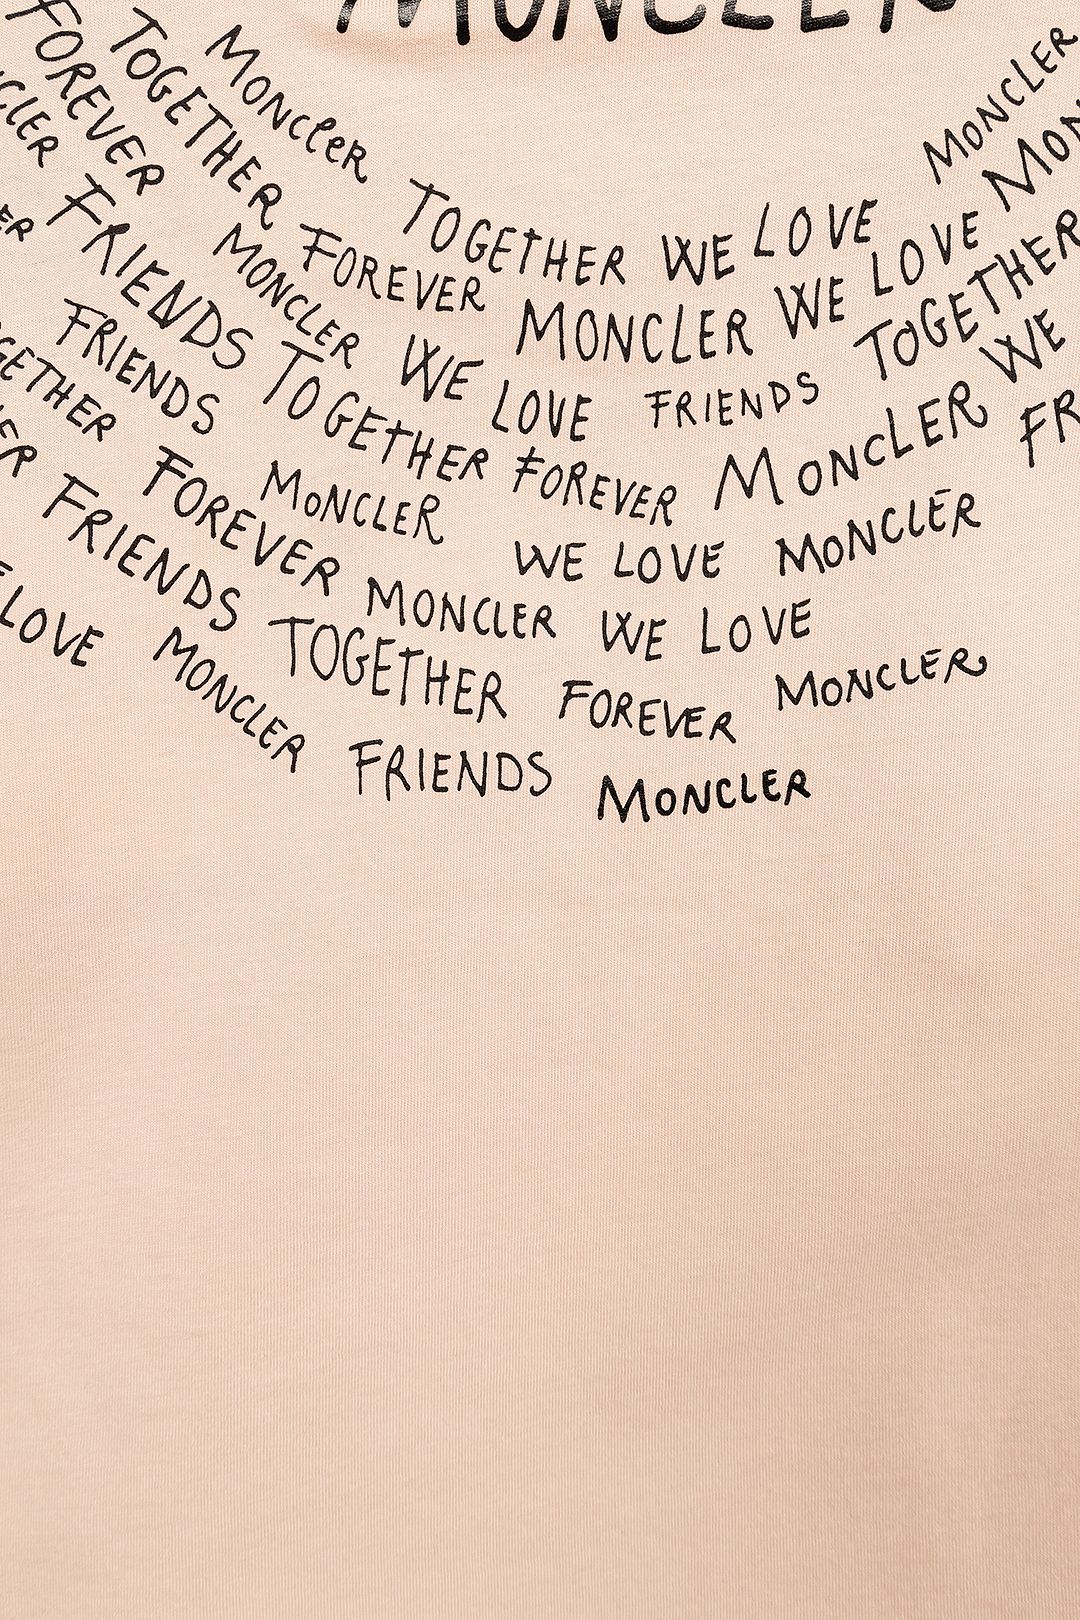 MONCLER
MONCleR TOGETHER WE LOVE MONCLER
TOGETHER FOREVER MONCLER WE LOVE MON
FOREVER MONCLER WE LOVE FRIENDS TOGETHER
CLER FRIENDS TOGETHER FOREVER MONCLER WE
ER FRIENDS MONCLER WE LOVE MONCLER FR
GETHER FOREVER MONCLER WE LOVE
ER FRIENDS TOGETHER FOREVER MONCLER
LOVE MONCLER FRIENDS MONCLER